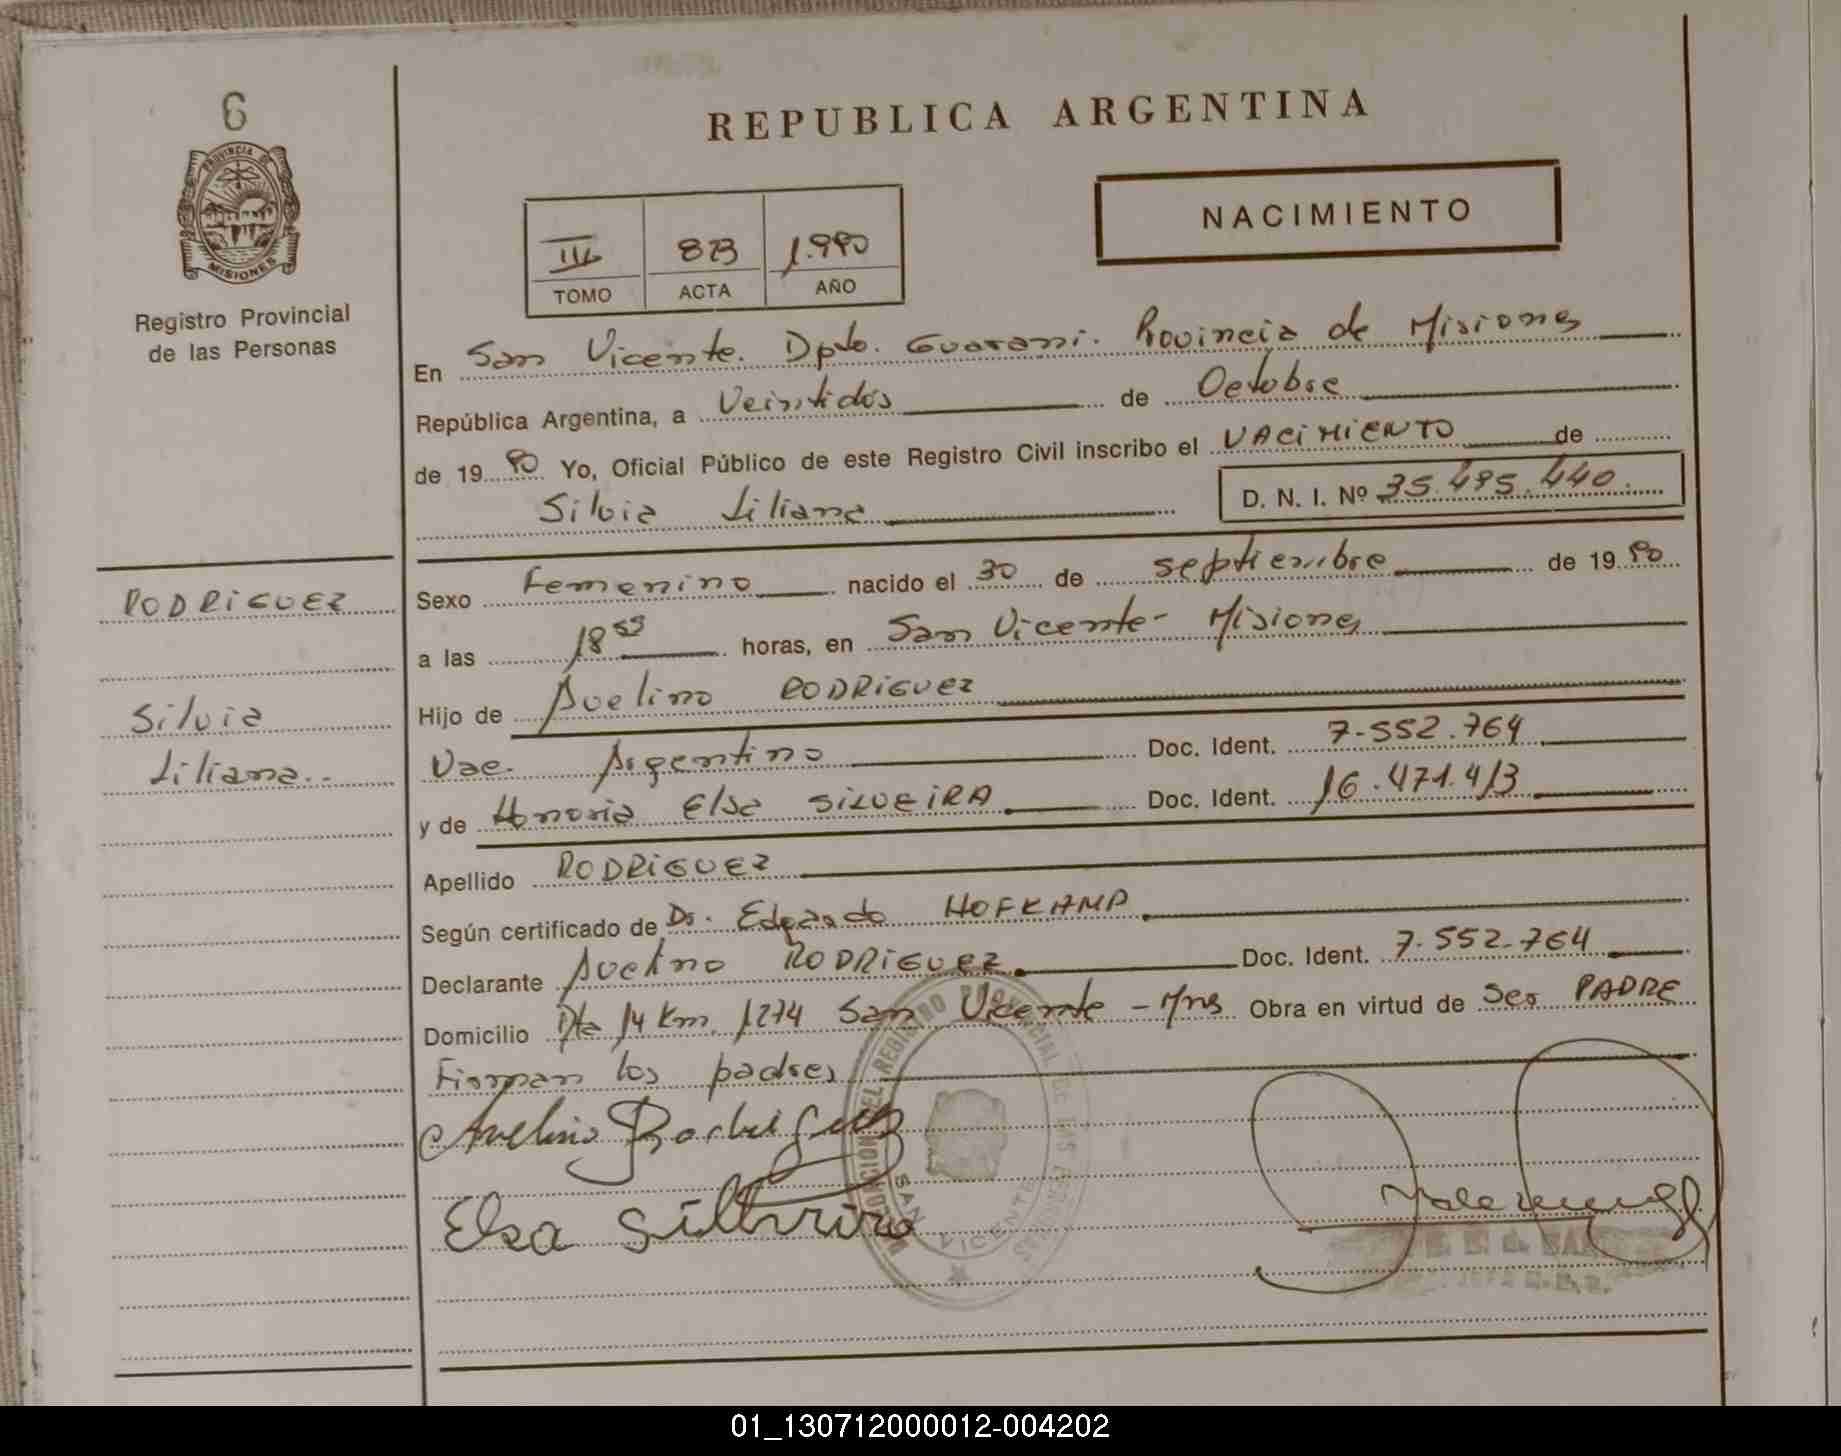 6
PROVINCIA DE
MISIONES
Registro Provincial
de las Personas
REPUBLICA ARGENTINA
NACIMIENTO
III 873 1.990
TOMO ACTA AÑO
En San Vicente. Dpto. Guarani. Provincia de Misiones
República Argentina, a Veintidós de Octubre
de 19 90 Yo, Oficial Público de este Registro Civil inscribo el NACIMIENTO de
Silvia Liliana D. N. I. Nº 35.495.440.
RODRIGUEZ
Silvia
Liliana..
Sexo Femenino nacido el 30 de septiembre de 19 90
a las 18 55 horas, en San Vicente - Misiones
Hijo de Avelino RODRIGUEZ
Nac. Argentino Doc. Ident. 7.552.764
y de Honoria Elsa SILVEIRA Doc. Ident. 16.471.413
Apellido RODRIGUEZ
Según certificado de Dr. Edgardo HOFKAMP
Declarante Avelino RODRIGUEZ Doc. Ident. 7.552.764
Domicilio Rta 14 Km. 1274 San Vicente - Mnes Obra en virtud de Ser PADRE
Firman los padres
Avelino Rodriguez
Elsa
DEL REGISTRO PROVINCIAL DE LAS PERSONAS
SAN VICENTE
01_130712000012-004202